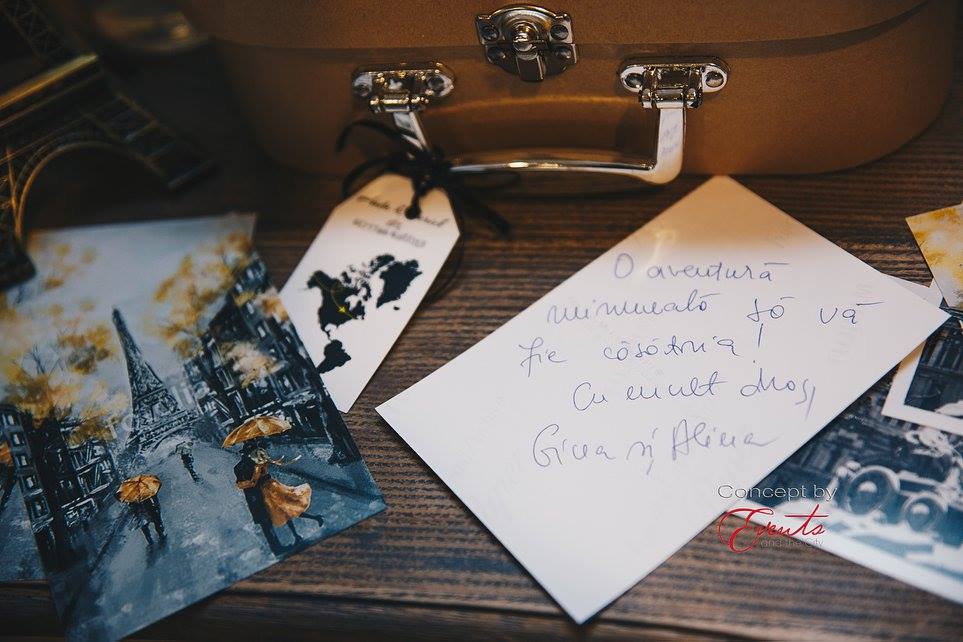 O aventură
minunată să vă
fie căsătnia!
Cu mult drag,
Gina și Alina
Concept by
Events
and the city